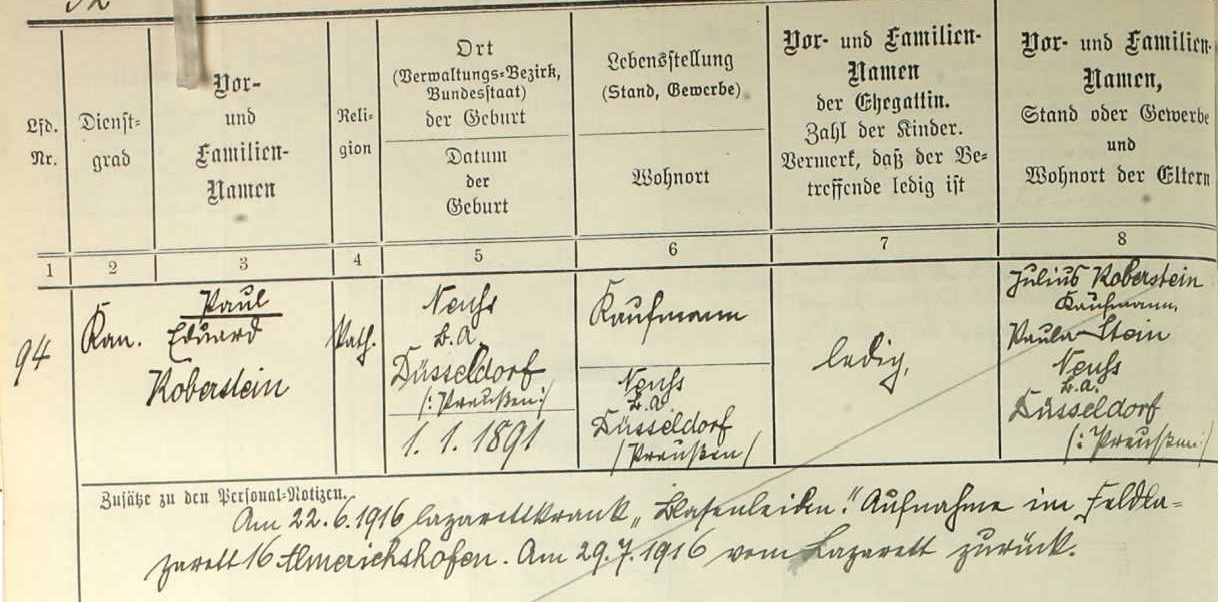 Lfd.
Nr.
Dienst-
grad
Vor-
und
Familien-
Namen
Reli-
gion
Ort
(Verwaltungs-Bezirk,
Bundesstaat)
der Geburt
Datum
der
Geburt
Lebensstellung
(Stand, Gewerbe)
Wohnort
Vor- und Familien-
Namen
der Ehegattin.
Zahl der Kinder.
Vermerk, daß der Be-
treffende ledig ist
Vor- und Familien-
Namen,
Stand oder Gewerbe
und
Wohnort der Eltern
1 2 3 4 5 6 7 8
94
Kan.
Paul
Eduard
Koberstein
Kath.
Neuß
B.A.
Düsseldorf
(: Preußen :)
1. 1. 1891
Kaufmann
Neuß
B.A.
Düsseldorf
(Preußen)
ledig,
Julius Koberstein
Kaufmann,
Paula Stein
Neuß
B.A.
Düsseldorf
(: Preußen :)
Zusätze zu den Personal-Notizen.
Am 22.6.1916 lazarettkrank „Blasenleiden". Aufnahme im Feldla-
zarett 16 Elmerichshofen. Am 29.7.1916 vom Lazarett zurück.